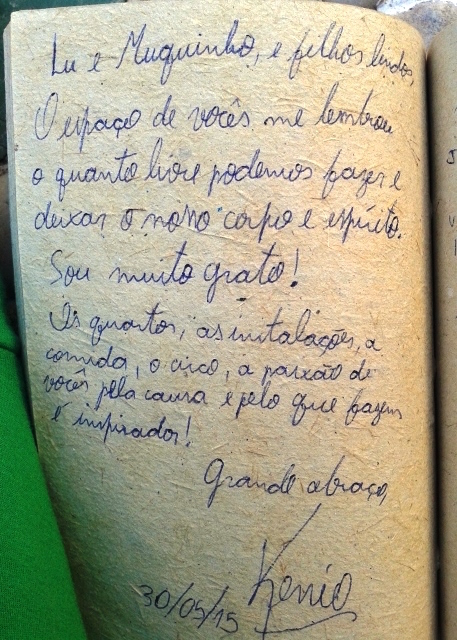 Lu e Muquinho, e filhos lindos,
O espaço de vocês me lembrou
o quanto livre podemos fazer e
deixar o nosso corpo e espírito.
Sou muito grato!
Os quartos, as instalações, a
comida, o circo, a paixão de
vocês pela causa e pelo que fazem
é inspirador!
Grande abraço,
Kenio
30/05/15